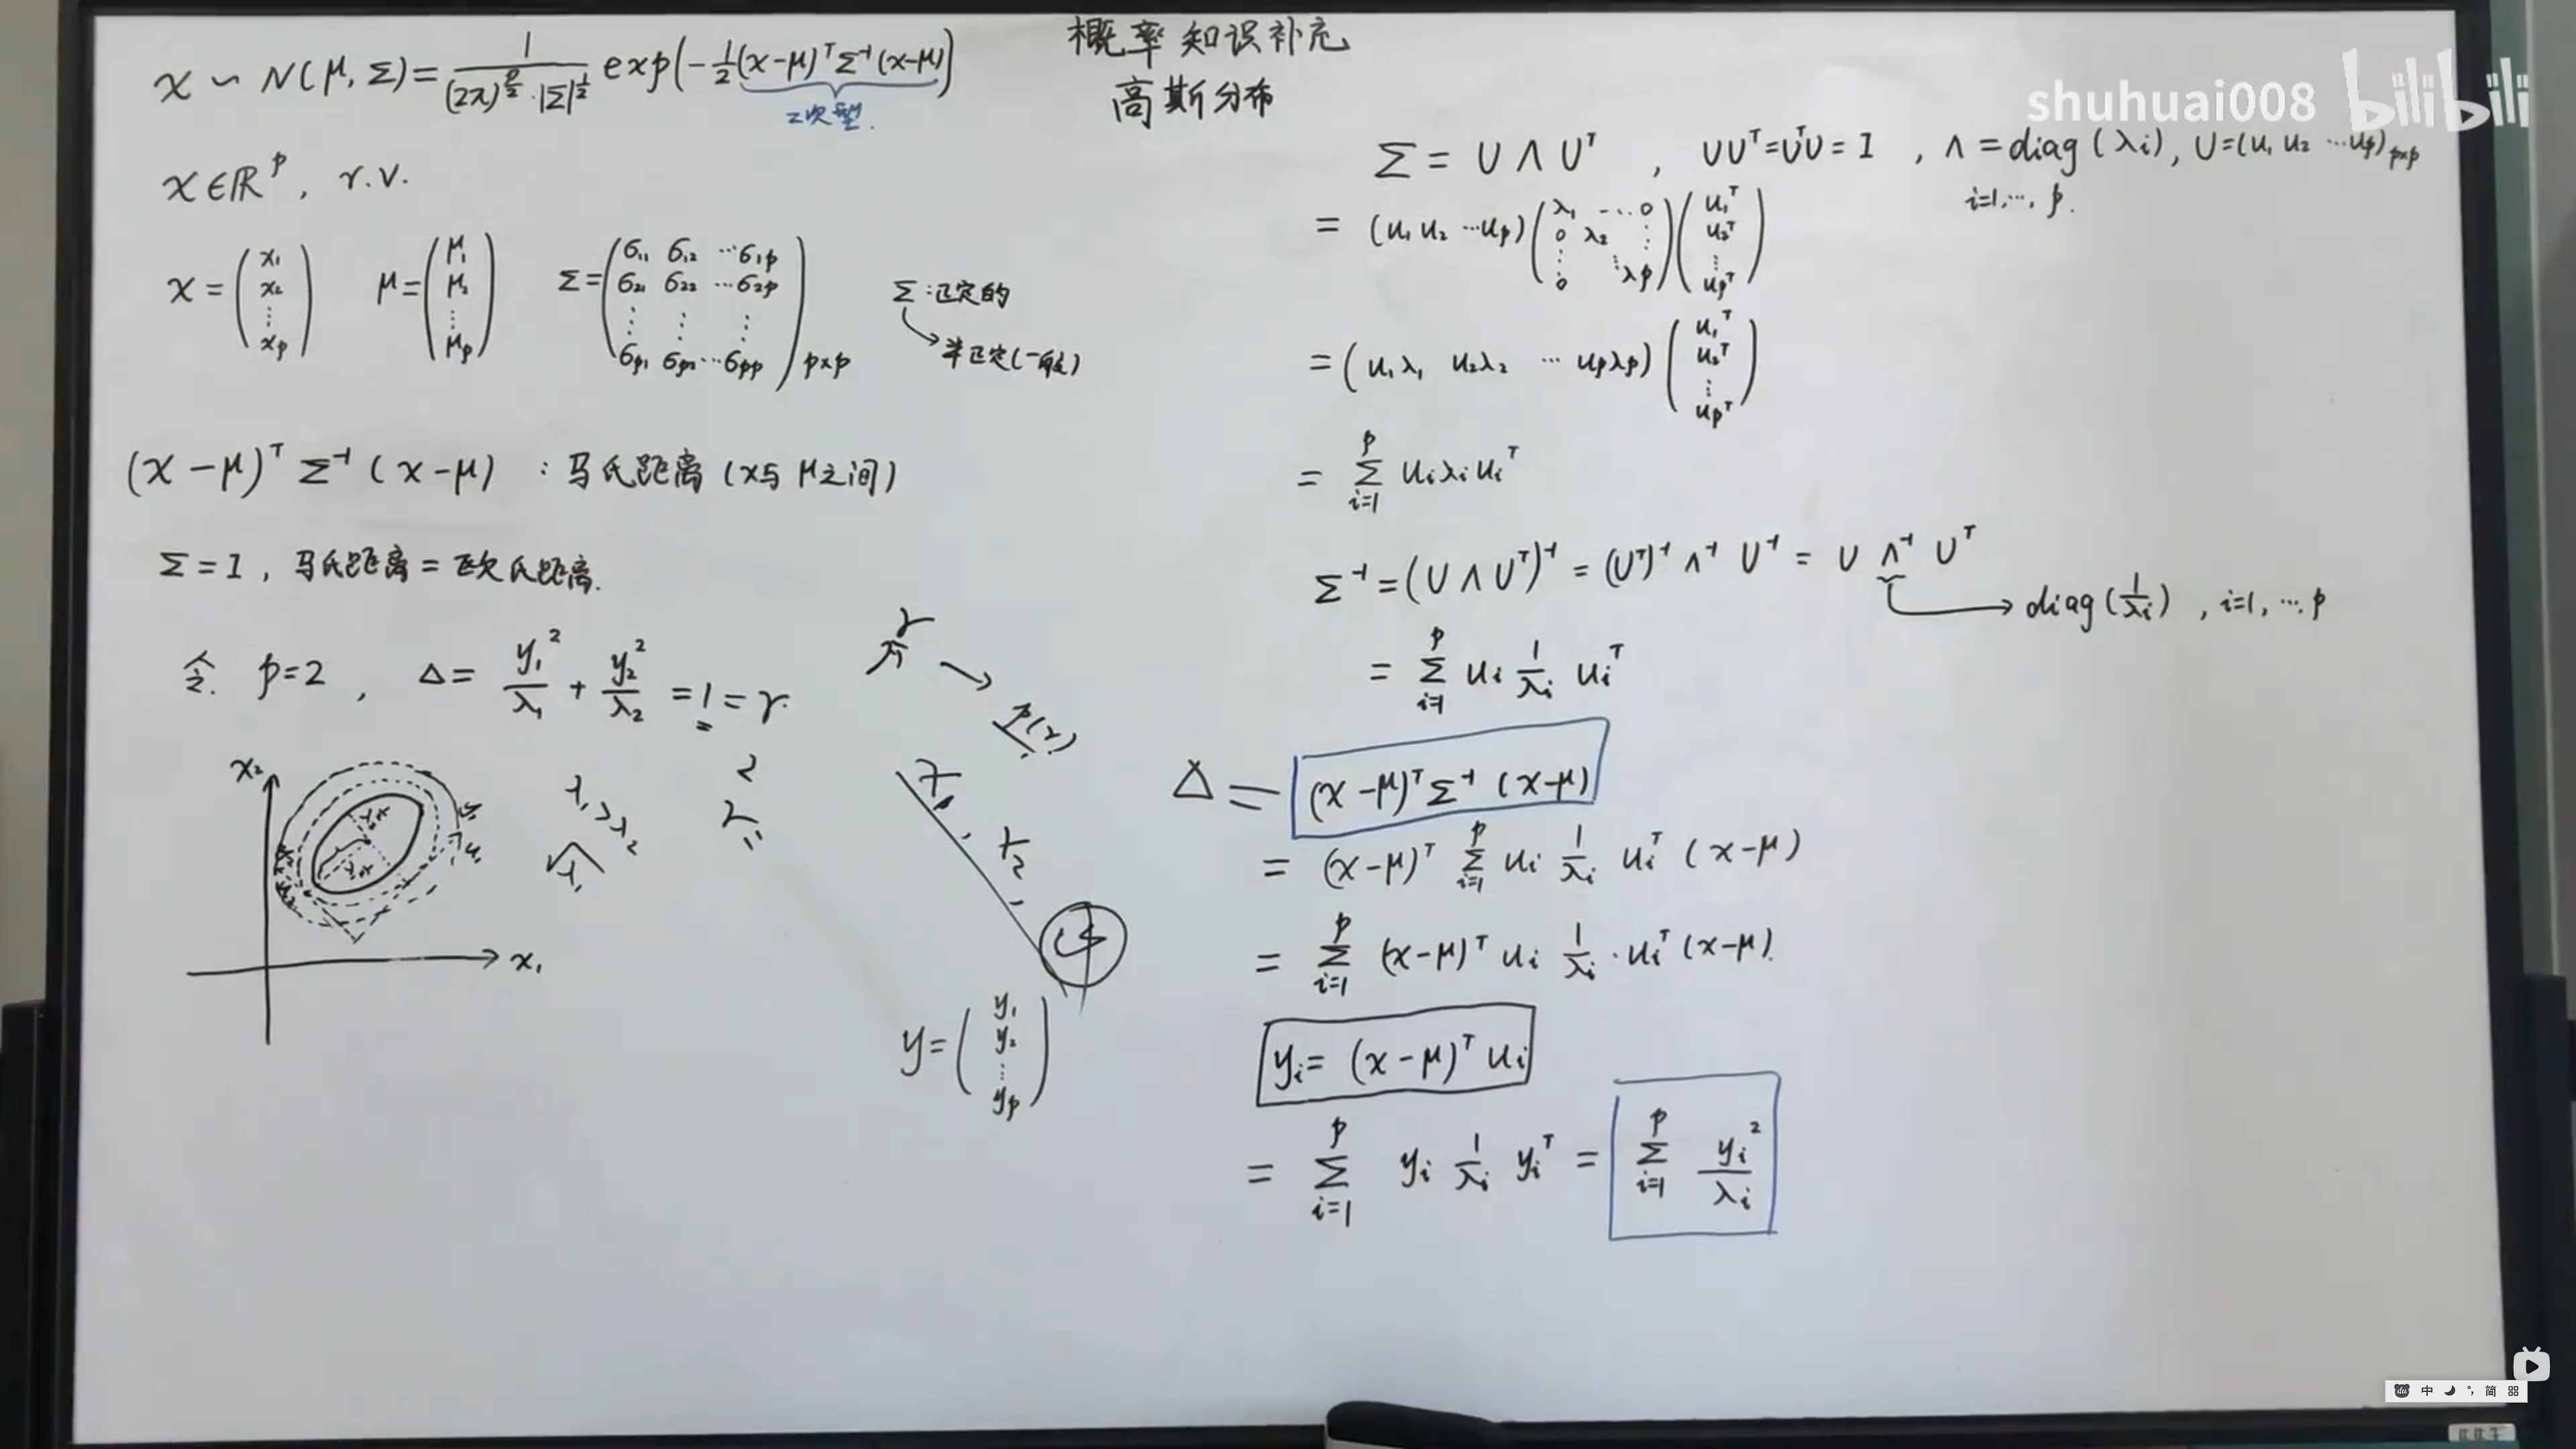 概率知识补充
高斯分布
x ~ N(μ, Σ) = 1/((2π)^(p/2) · |Σ|^(1/2)) exp(-1/2 (x-μ)^T Σ^-1 (x-μ))
二次型.
x ∈ ℝ^p, r.v.
x = (x1 x2 ⋮ xp) μ = (μ1 μ2 ⋮ μp) Σ = (σ11 σ12 ⋯ σ1p
σ21 σ22 ⋯ σ2p
⋮ ⋮ ⋮
σp1 σp2 ⋯ σpp)p×p
Σ:正定的
→ 半正定(一般)
(x-μ)^T Σ^-1 (x-μ) : 马氏距离 (x与μ之间)
Σ = I, 马氏距离 = 欧氏距离.
令 p=2, Δ = y1²/λ1 + y2²/λ2 = 1 = r.
r → p(r)
x2
x1
λ1 > λ2
y = (y1 y2 ⋮ yp)
shuhuai008 bilibili
Σ = U Λ U^T, UU^T = U^TU = I, Λ = diag(λi), U = (u1 u2 ⋯ up)p×p
i=1,⋯, p.
= (u1 u2 ⋯ up) (λ1 ⋯ 0
0 λ2 ⋮
⋮ ⋱ λp
0) (u1^T u2^T ⋮ up^T)
= (u1λ1 u2λ2 ⋯ upλp) (u1^T u2^T ⋮ up^T)
= Σ_{i=1}^p ui λi ui^T
Σ^-1 = (U Λ U^T)^-1 = (U^T)^-1 Λ^-1 U^-1 = U Λ^-1 U^T
→ diag(1/λi), i=1, ⋯, p
= Σ_{i=1}^p ui 1/λi ui^T
Δ = (x-μ)^T Σ^-1 (x-μ)
= (x-μ)^T Σ_{i=1}^p ui 1/λi ui^T (x-μ)
= Σ_{i=1}^p (x-μ)^T ui 1/λi · ui^T (x-μ).
yi = (x-μ)^T ui
= Σ_{i=1}^p yi 1/λi yi^T = Σ_{i=1}^p yi²/λi
中 简